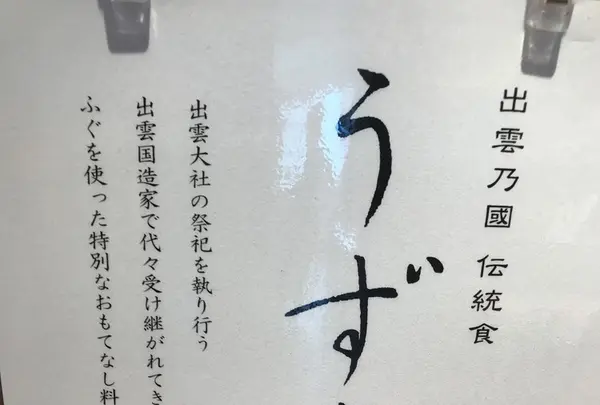 出雲乃國 伝統食
うず
出雲大社の祭祀を執り行う
出雲国造家で代々受け継がれてき
ふぐを使った特別なおもてなし料